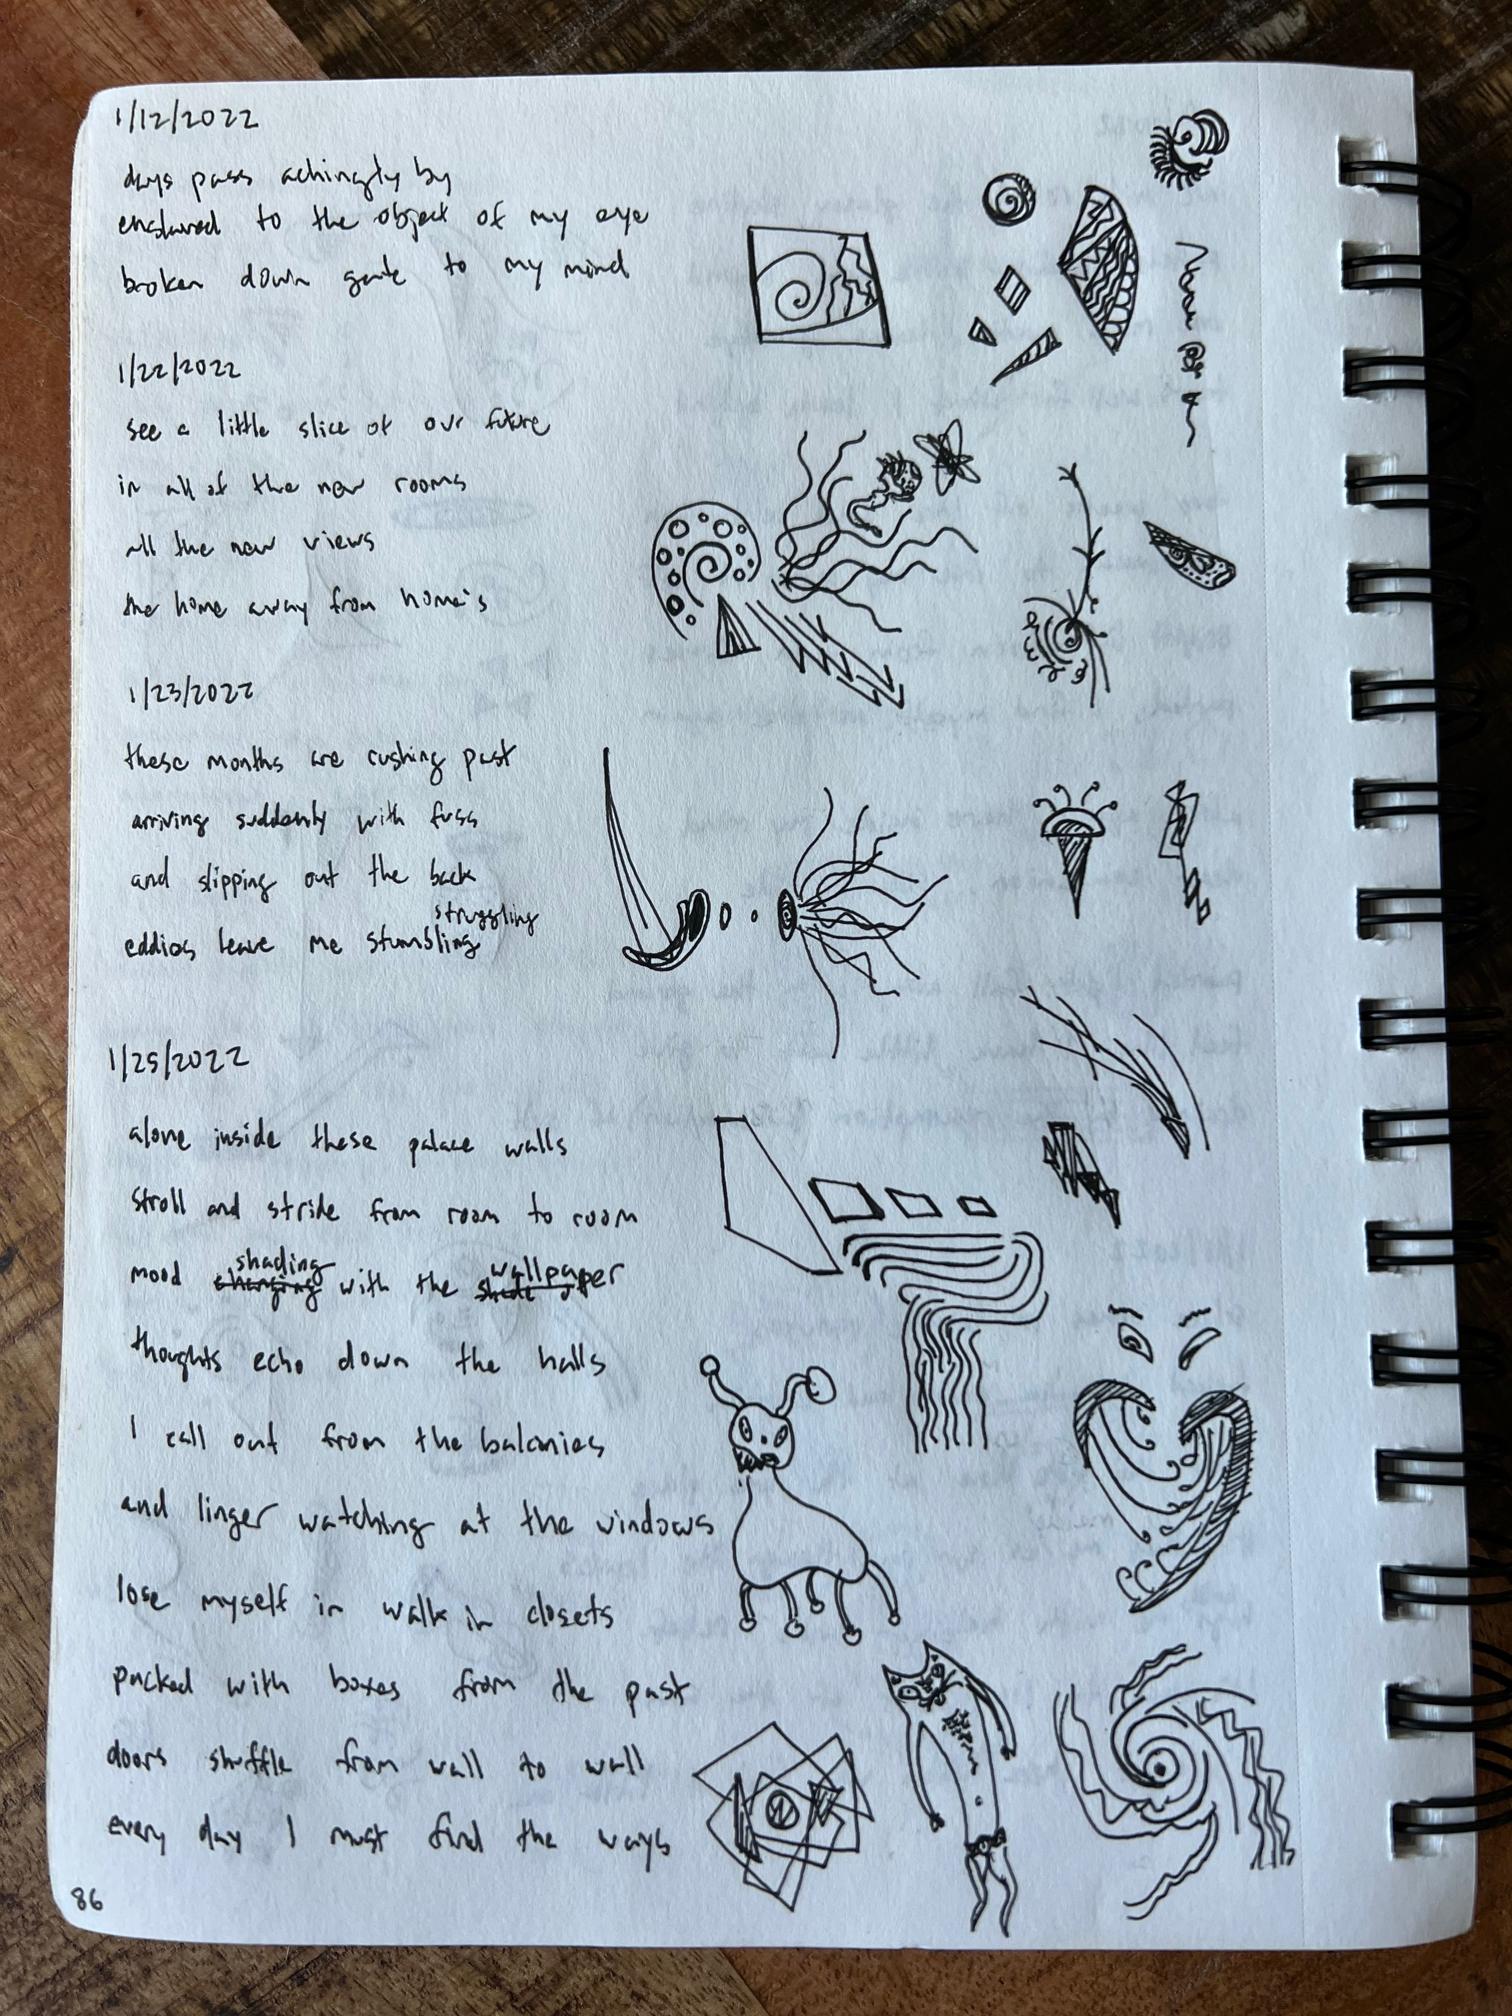 1/12/2022
days pass achingly by
enslaved to the object of my eye
broken down gate to my mind
1/22/2022
see a little slice of our future
in all of the new rooms
all the new views
the home away from home's
1/23/2022
these months are rushing past
arriving suddenly with fuss
and slipping out the back
struggling
eddies leave me stumbling
1/25/2022
alone inside these palace walls
stroll and stride from room to room
shading wallpaper
mood changing with the shade
thoughts echo down the halls
I call out from the balconies
and linger watching at the windows
lose myself in walk in closets
packed with boxes from the past
doors shuffle from wall to wall
every day I must find the ways
86